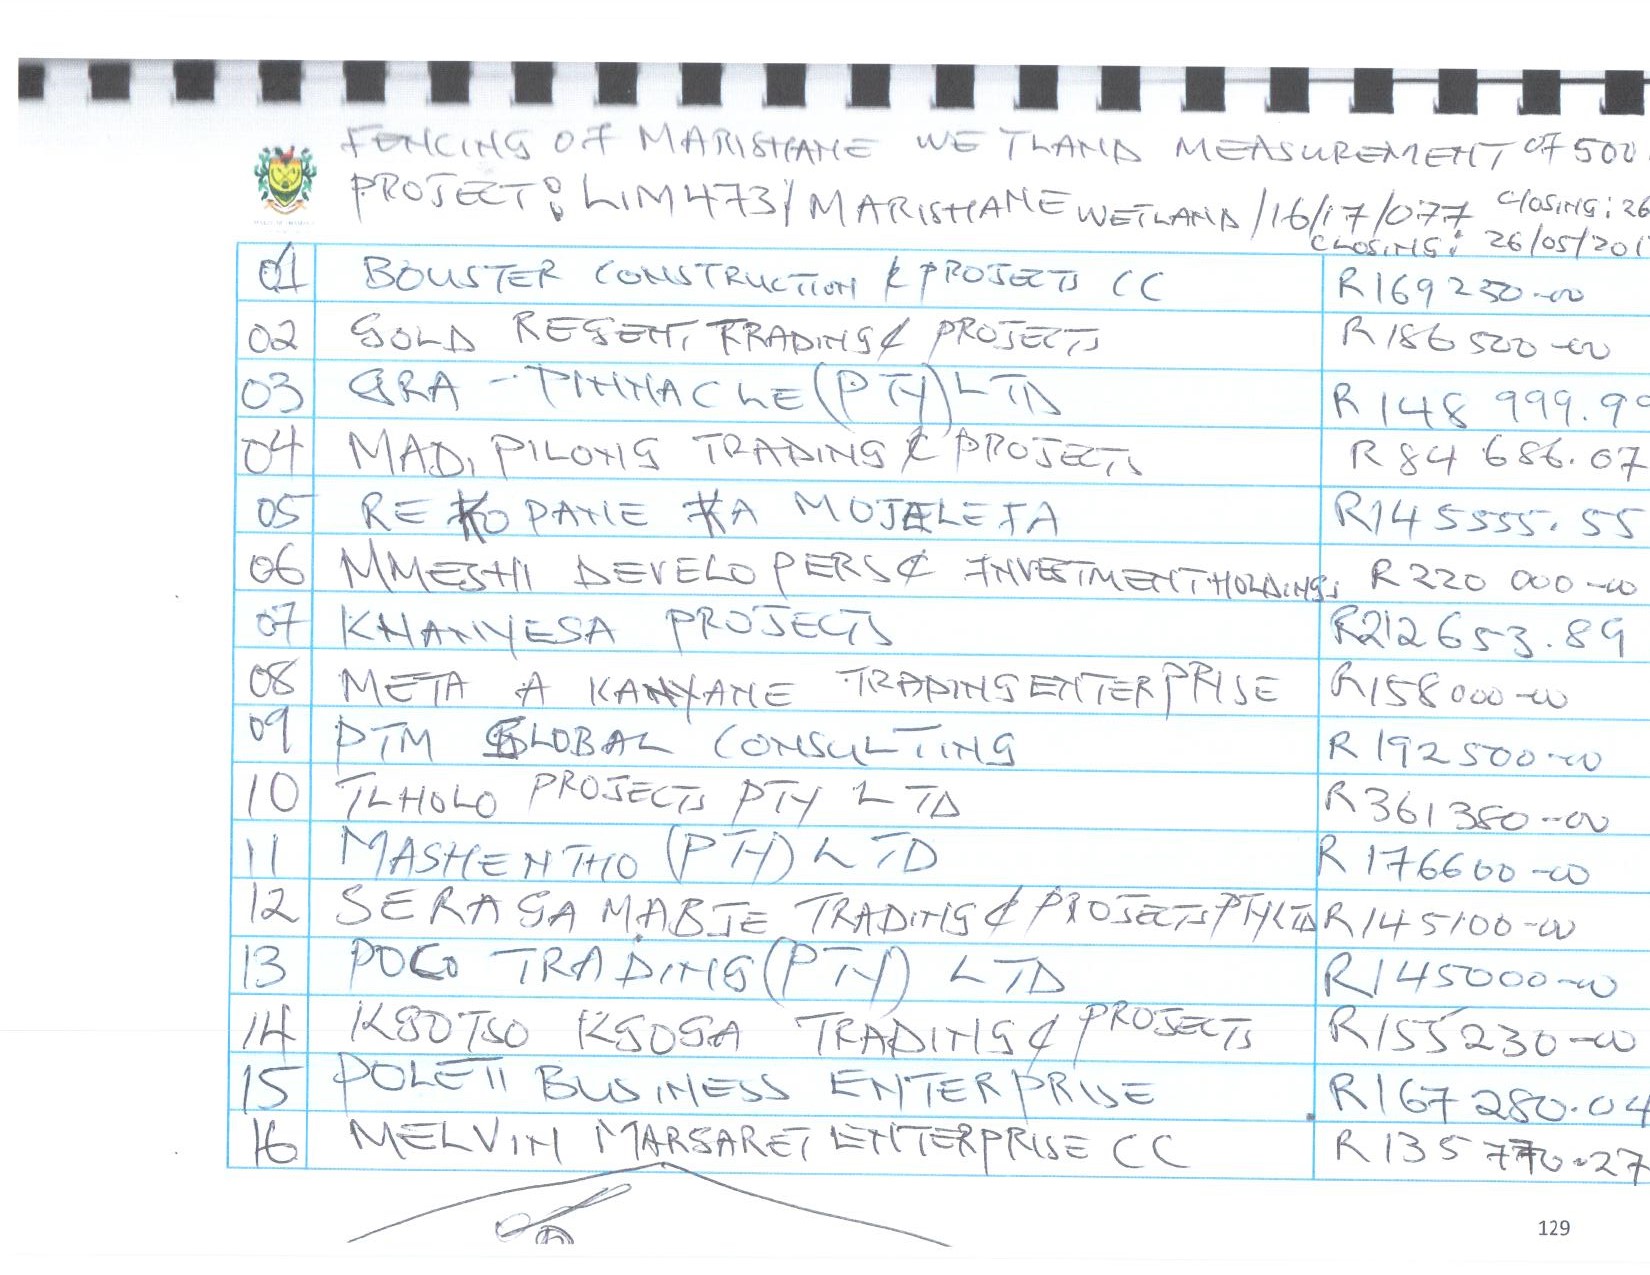 FENCING OF MARISHANE WETLAND MEASUREMENT OF 500
PROJECT: LIM473/MARISHANE WETLAND/16/17/077 Closing: 26
CLOSING: 26/05/201
01 BOUSTER CONSTRUCTION & PROJECTS CC R169230-00
02 GOLD REGENT TRADING & PROJECTS R186500-00
03 GRA-PINNACLE (PTY) LTD R148 999.99
04 MADI PILONG TRADING & PROJECTS R84 686.07
05 RE KOPANE KA MOJALEFA R145555.55
06 MMESHI DEVELOPERS & INVESTMENT HOLDINGS R220 000-00
07 KHANYESA PROJECTS R212653.89
08 META A KANYANE TRADING ENTERPRISE R158000-00
09 PTM GLOBAL CONSULTING R192500-00
10 TLHOLO PROJECTS PTY LTD R361380-00
11 MASHENTHO (PTY) LTD R176600-00
12 SERAGA MABJE TRADING & PROJECTS PTY LTD R145100-00
13 POCO TRADING (PTY) LTD R145000-00
14 KGOTSO KGOGA TRADING & PROJECTS R155230-00
15 POLETI BUSINESS ENTERPRISE R167280.04
16 MELVIN MARGARET ENTERPRISE CC R135770.27
129